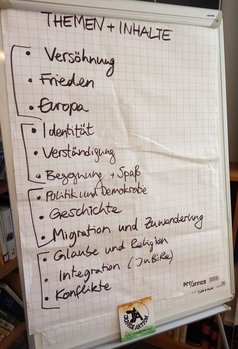 THEMEN + INHALTE
• Versöhnung
• Frieden
• Europa
• Identität
• Verständigung
• Begegnung + Spaß
• Politik und Demokratie
• Geschichte
• Migration und Zuwanderung
• Glaube und Religion
• Integration (JuBiRe)
• Konflikte